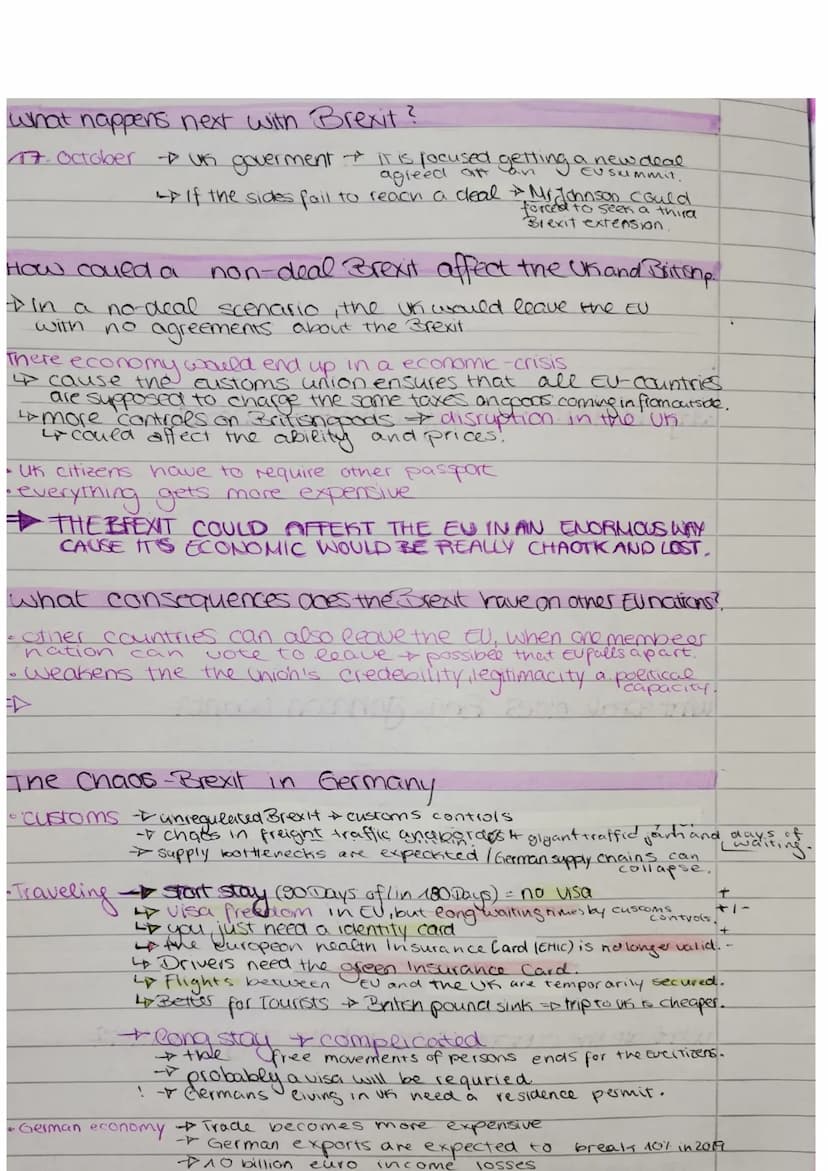 What happens next with Brexit?
17. October → UK goverment → it is focused getting a new deal
agreed at an EU summit.
↳ If the sides fail to reach a deal → Mr Johnson could
forced to seek a third
Brexit extension.
How coued a non-deal Brexit affect the UK and Britsh p.
→ In a no-deal scenario, the UK would leave the EU
with no agreements about the Brexit
There economy would end up in a economic-crisis
↳ cause the customs union ensures that all EU-countries
are supposed to charge the same taxes on goods coming in from outside.
↳ more controls on British goods → disruption in the UK
↳ could affect the ability and prices!
• UK citizens have to require other passport
• everything gets more expensive
⇒ THE BREXIT COULD AFFEKT THE EU IN AN ENORMOUS WAY
CAUSE IT'S ECONOMIC WOULD BE REALLY CHAOTIK AND LOST.
What consequences does the Brexit have on other EU nations?
• other countries can also leave the EU, when one member
nation can vote to leave → possible that EU falls apart.
• weakens the the union's credebility, legitimacity a political
capacity.
⇒
The Chaos-Brexit in Germany
• Customs → unregulated Brexit → customs controls
→ chaos in freight traffic and borders → gigant traffic jam and days of
waiting.
→ supply bottlenecks are expeckted / German supply chains can
collapse.
• Traveling → Short stay (90 Days of/in 180 Days) = no visa +
↳ visa freedom in EU, but long waiting times by customs
controls. +/-
↳ you just need a identity card +
↳ the european health Insurance Card (EHIC) is no longer valid. -
↳ Drivers need the green Insurance Card.
↳ Flights between EU and the UK are temporarily secured.
↳ Better for Tourists → British pound sink ⇒ trip to UK is cheaper.
→ long stay → complicated
→ the free movements of persons ends for the EU citizens.
→ probably a visa will be requried
! → Germans living in UK need a residence permit.
• German economy → Trade becomes more expensive
→ German exports are expected to break 10% in 2019
→ 10 billion euro income losses